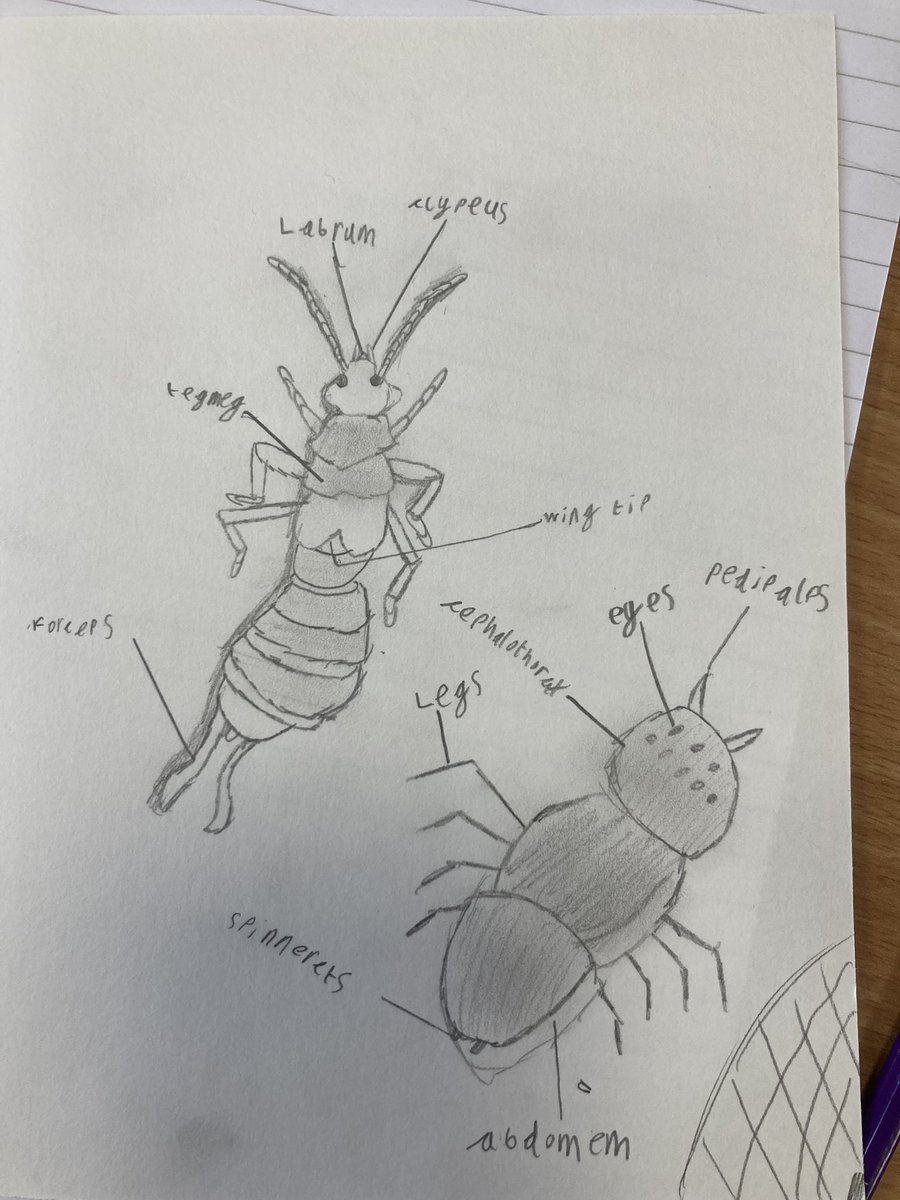 Labrum
clypeus
tegmeg
wing tip
forceps
pedipalps
eyes
cephalothorax
Legs
spinnerets
abdomem